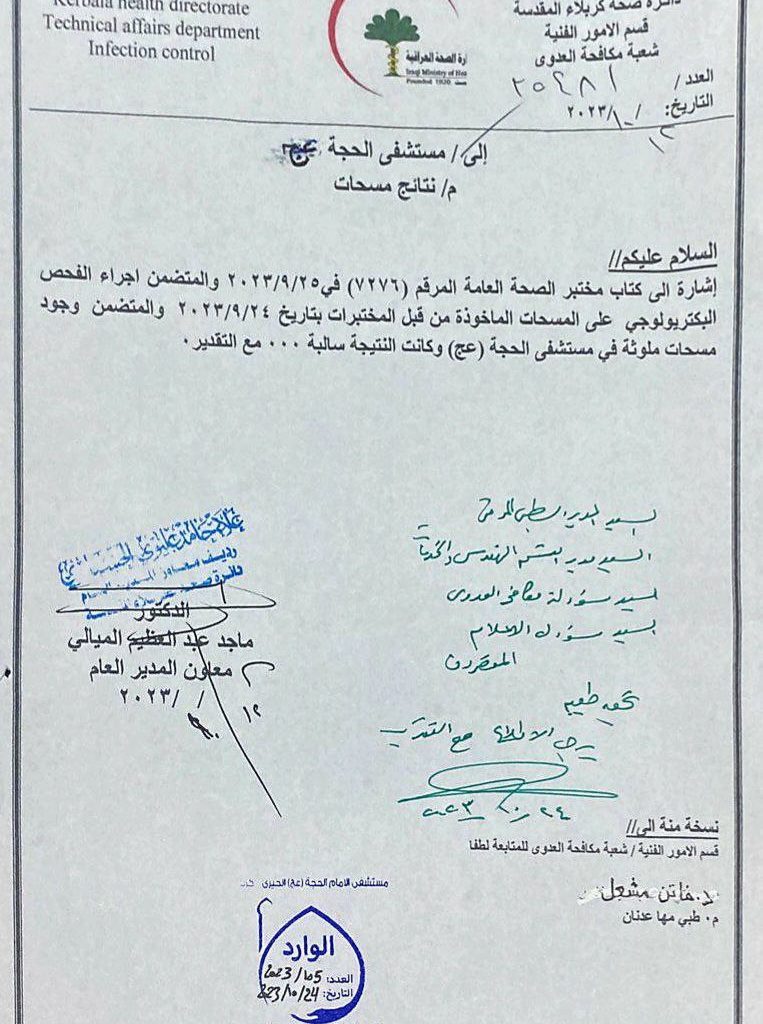 Kerbala health directorate
Technical affairs department
Infection control
دائرة صحة كربلاء المقدسة
قسم الامور الفنية
شعبة مكافحة العدوى
وزارة الصحة العراقية
Iraqi Ministry of Hea
Founded 1920
العدد / ٢٥٤٨١
التاريخ: / ١٠/ ٢٠٢٣
١٢
إلى / مستشفى الحجة عج
م/ نتائج مسحات
السلام عليكم//
إشارة الى كتاب مختبر الصحة العامة المرقم (٧٢٧٦) في٢٠٢٣/٩/٢٥ والمتضمن اجراء الفحص
البكتريولوجي على المسحات الماخوذة من قبل المختبرات بتاريخ ٢٠٢٣/٩/٢٤ والمتضمن وجود
مسحات ملوثة في مستشفى الحجة (عج) وكانت النتيجة سالبة ٠٠٠ مع التقدير٠
السيد المدير الطبي
السيد مدير القسم الهندسي والخدمات
السيد مسؤولة مكافحة العدوى
السيد مسؤول الاعلام
المحترمون
تحية طيبة
يرجى الاطلاع مع التقدير
٢٤ /١٠ ٢٠٢٣
علاء حامد علوي
الدكتور
ماجد عبد العظيم الميالي
معاون المدير العام
/ / ٢٠٢٣
١٢
نسخة منة الى//
قسم الامور الفنية / شعبة مكافحة العدوى للمتابعة لطفا
د. فاتن مشعل
م٠ طبي مها عدنان
مستشفى الامام الحجة (عج) الخيري
الوارد
العدد: 2023/105
التاريخ: 2023/10/24